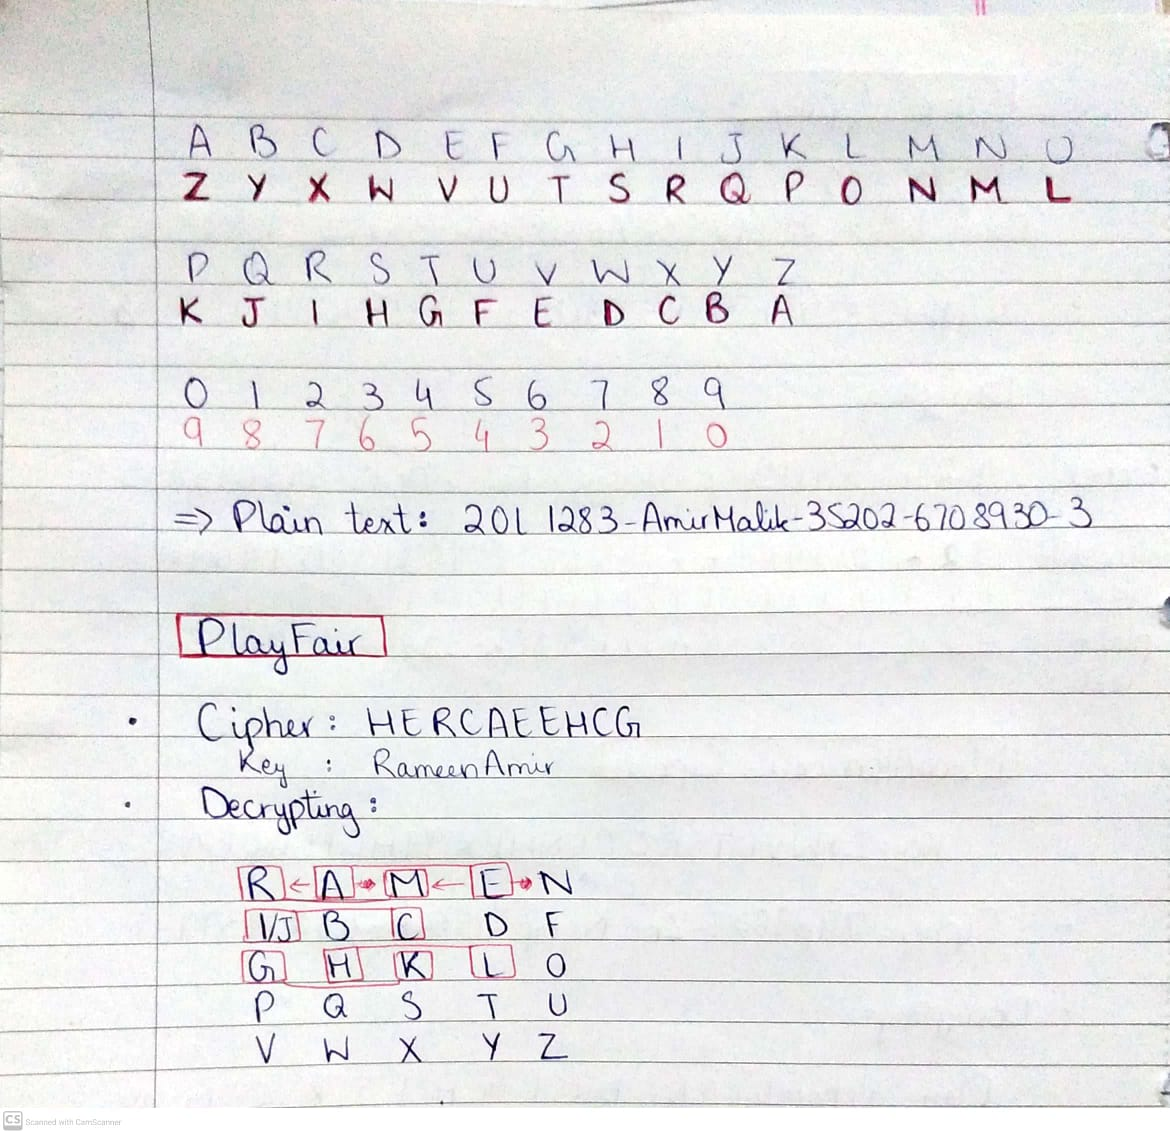 A B C D E F G H I J K L M N O
Z Y X W V U T S R Q P O N M L
P Q R S T U V W X Y Z
K J I H G F E D C B A
0 1 2 3 4 5 6 7 8 9
9 8 7 6 5 4 3 2 1 0
=> Plain text: 20L 1283-AmirMalik-35202-6708930-3
PlayFair
• Cipher: HERCAEEHCG
Key : RameenAmir
• Decrypting:
R ← A → M ← E → N
I/J B C D F
G H K L O
P Q S T U
V W X Y Z
CS Scanned with CamScanner